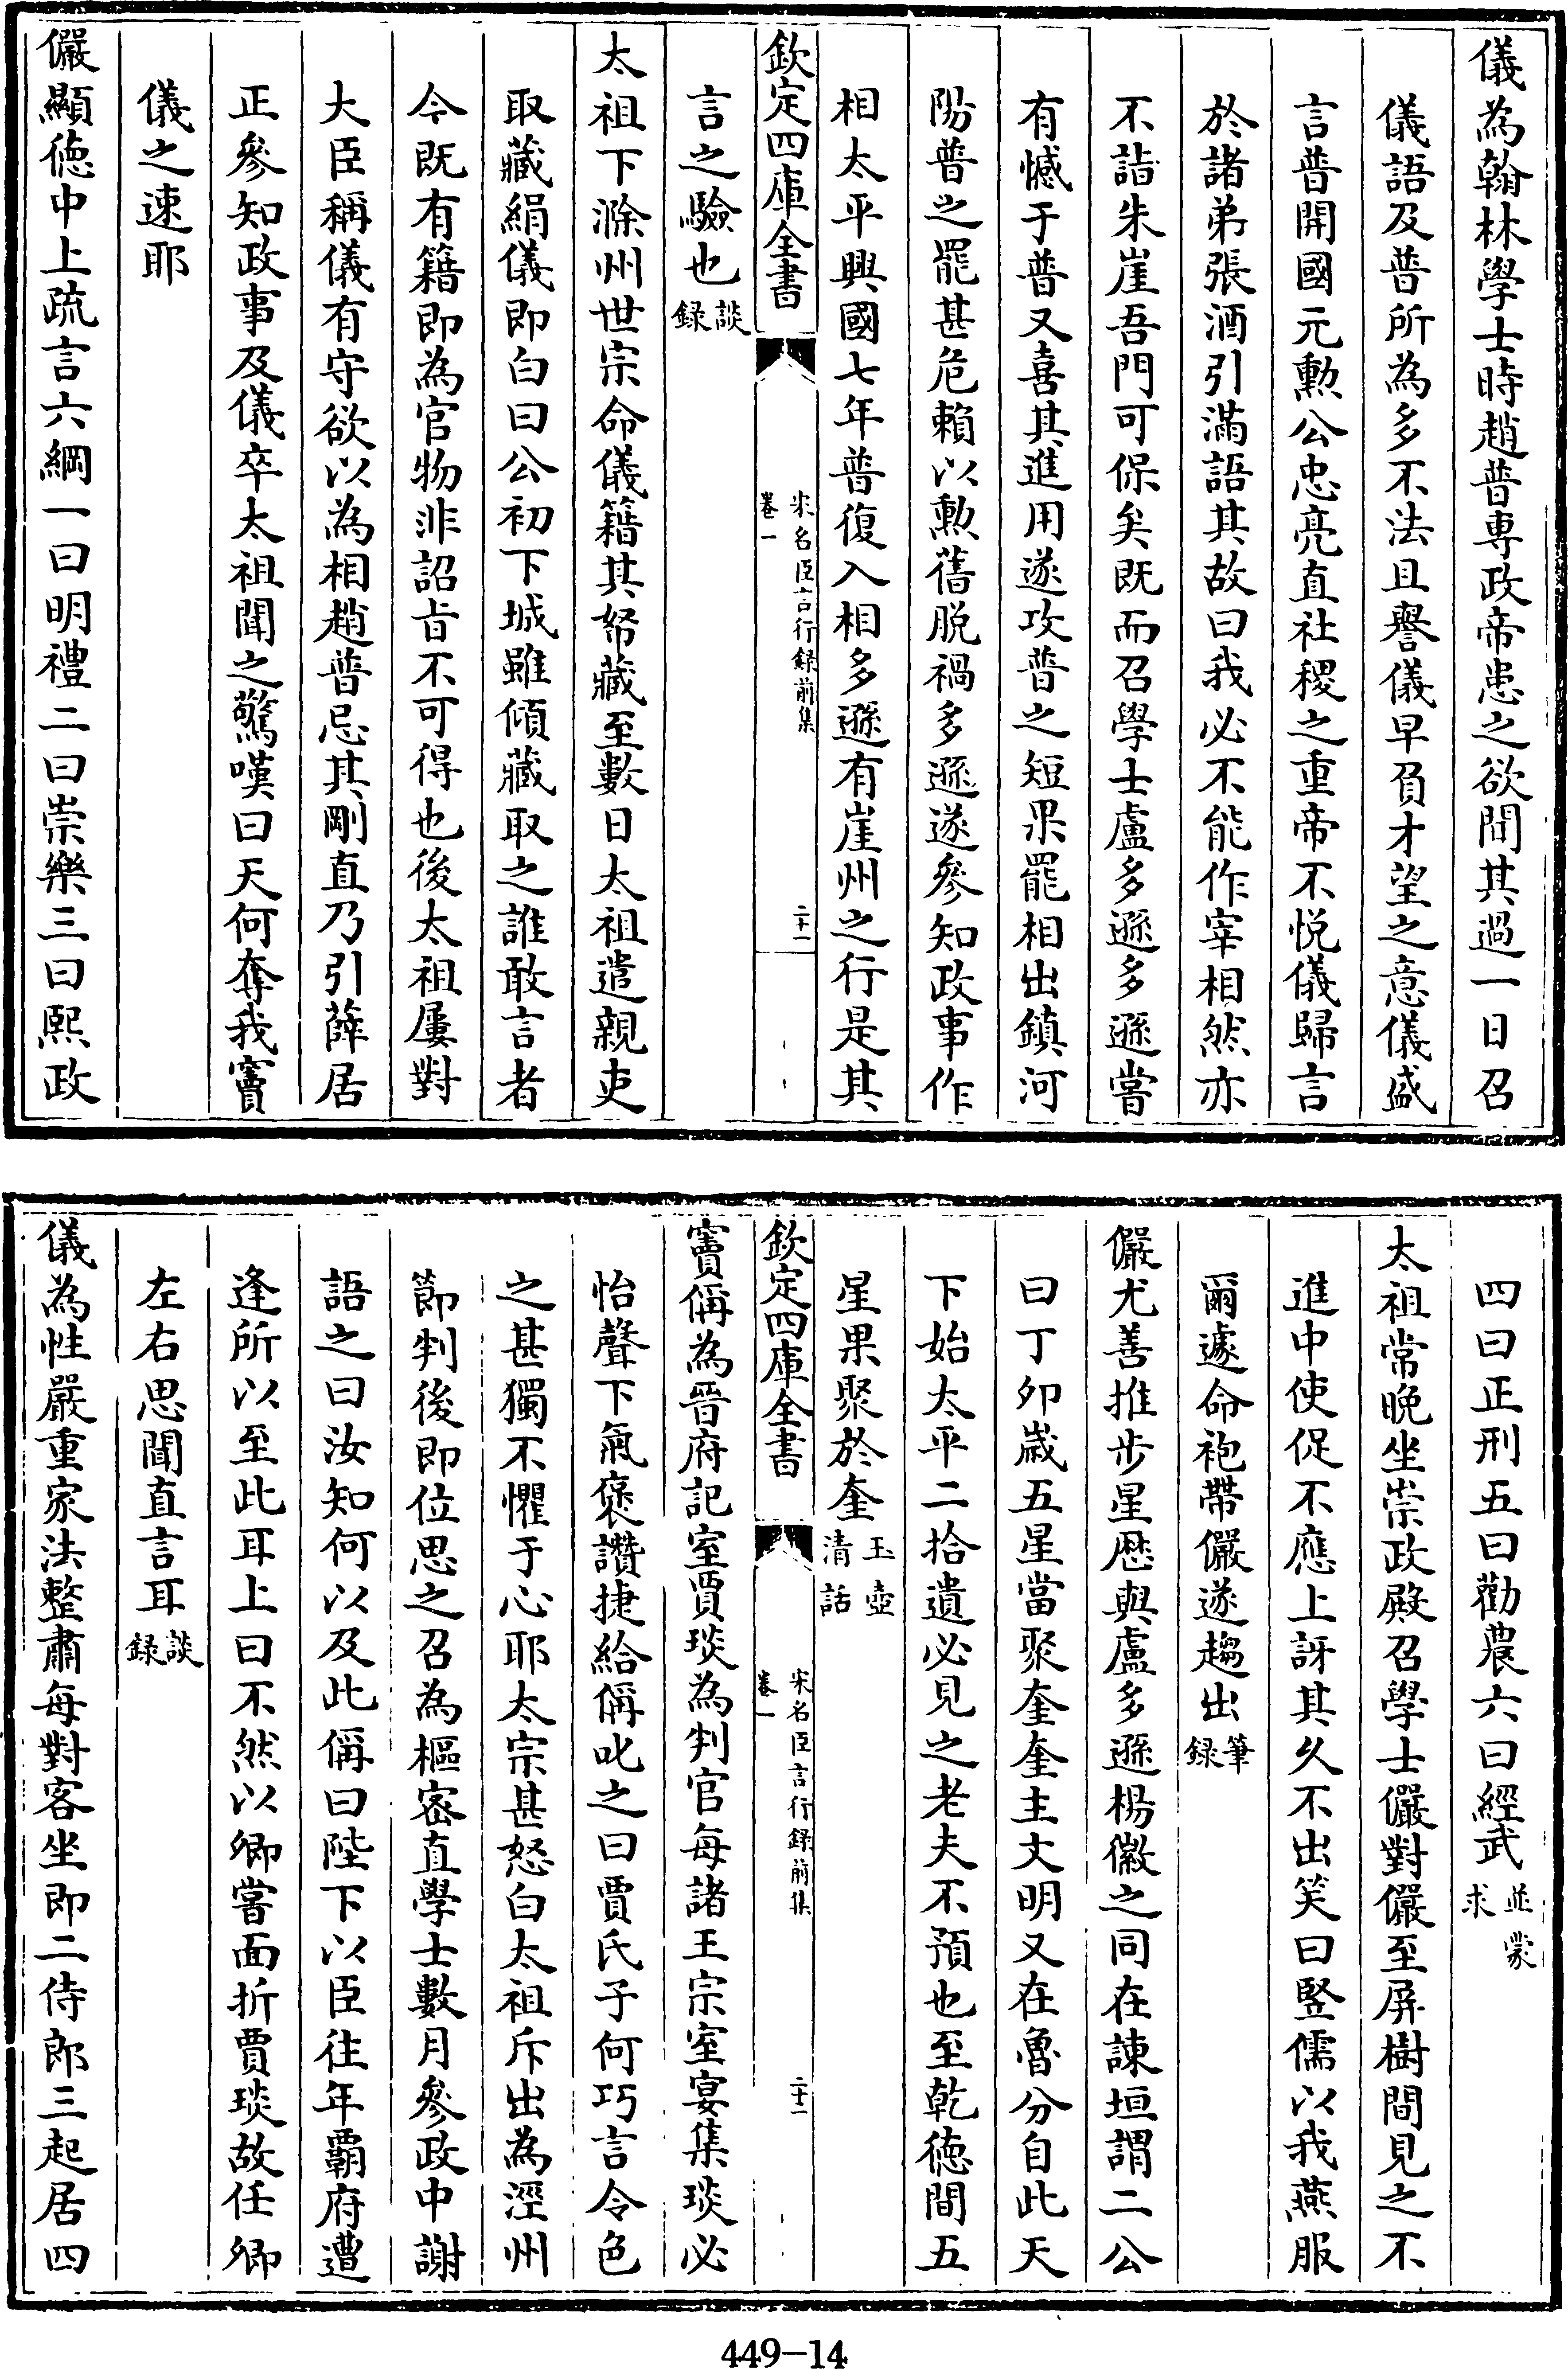 儀為翰林學士時趙普專政帝患之欲聞其過一日召
儀語及普所為多不法且譽儀早負才望之意儀盛
言普開國元勲公忠亮直社稷之重帝不悅儀歸言
於諸弟張酒引滿語其故曰我必不能作宰相然亦
不詣朱崖吾門可保矣既而召學士盧多遜多遜嘗
有憾于普又喜其進用遂攻普之短果罷相出鎮河
陽普之罷甚危賴以勲舊脫禍多遜遂參知政事作
相太平興國七年普復入相多遜有崖州之行是其
欽定四庫全書
宋名臣言行録前集
卷一
二十一
言之驗也談録
太祖下滁州世宗命儀籍其帑藏至數日太祖遣親吏
取藏絹儀即白曰公初下城雖傾藏取之誰敢言者
今既有籍即為官物非詔旨不可得也後太祖屢對
大臣稱儀有守欲以為相趙普忌其剛直乃引薛居
正參知政事及儀卒太祖聞之驚嘆曰天何奪我竇
儀之速耶
儼顯徳中上疏言六綱一曰明禮二曰崇樂三曰熙政
四曰正刑五曰勸農六曰經武並蒙求
太祖常晚坐崇政殿召學士儼對儼至屏樹間見之不
進中使促不應上訝其久不出笑曰竪儒以我燕服
爾遽命袍帶儼遂趨出筆録
儼尤善推步星厯與盧多遜楊徽之同在諫垣謂二公
曰丁夘嵗五星當聚奎奎主文明又在魯分自此天
下始太平二拾遺必見之老夫不預也至乾徳間五
星果聚於奎玉壺清話
欽定四庫全書
宋名臣言行録前集
卷一
二十二
竇偁為晉府記室賈琰為判官每諸王宗室宴集琰必
怡聲下氣褒讚捷給偁叱之曰賈氏子何巧言令色
之甚獨不懼于心耶太宗甚怒白太祖斥出為涇州
節判後即位思之召為樞密直學士數月參政中謝
語之曰汝知何以及此偁曰陛下以臣往年覇府遭
逢所以至此耳上曰不然以卿嘗面折賈琰故任卿
左右思聞直言耳談録
儀為性嚴重家法整肅每對客坐即二侍郎三起居四
449-14